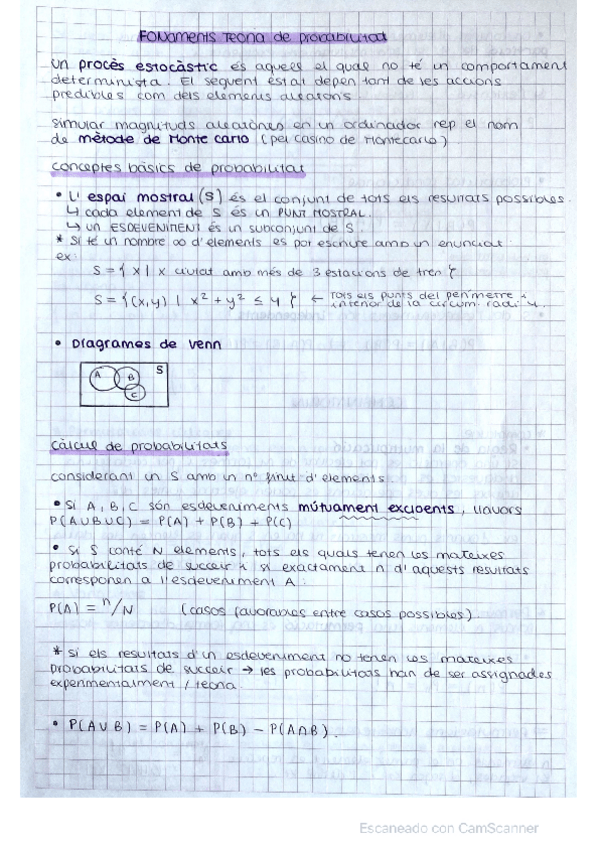 FONAMENTS TEORIA DE PROBABILITAT
Un procès estocàstic és aquees el qual no té un comportament
determinista. El seguent estat depèn tant de les accions
predibles com dels elements aleatoris.
Simular magnituds aleatòries en un ordinador rep el nom
de mètode de Monte Carlo (pel casino de Montecarlo)
Conceptes bàsics de probabilitat
• L'espai mostral (S) és el conjunt de tots els resultats possibles.
↳ cada element de S és un PUNT MOSTRAL.
↳ un ESDEVENIMENT és un subconjunt de S.
* Si té un nombre ∞ d'elements es pot escriure amb un enunciat
ex:
S = { x | x ciutat amb més de 3 estacions de tren }
S = {(x,y) | x² + y² ≤ 4 } ← Tots els punts del perímetre i
interior de la circum. radi 4.
• Diagrames de Venn
A B C S
Càlcul de probabilitats
Considerant un S amb un nº finit d'elements
• Si A, B, C són esdeveniments mútuament excloents, llavors
P(A∪B∪C) = P(A) + P(B) + P(C)
• Si S conté N elements, tots els quals tenen les mateixes
probabilitats de succeir i si exactament n d'aquests resultats
corresponen a l'esdeveniment A:
P(A) = n/N (casos favorables entre casos possibles)
* Si els resultats d'un esdeveniment no tenen les mateixes
probabilitats de succeir → les probabilitats han de ser assignades
experimentalment / teoria.
• P(A∪B) = P(A) + P(B) - P(A∩B).
Escaneado con CamScanner